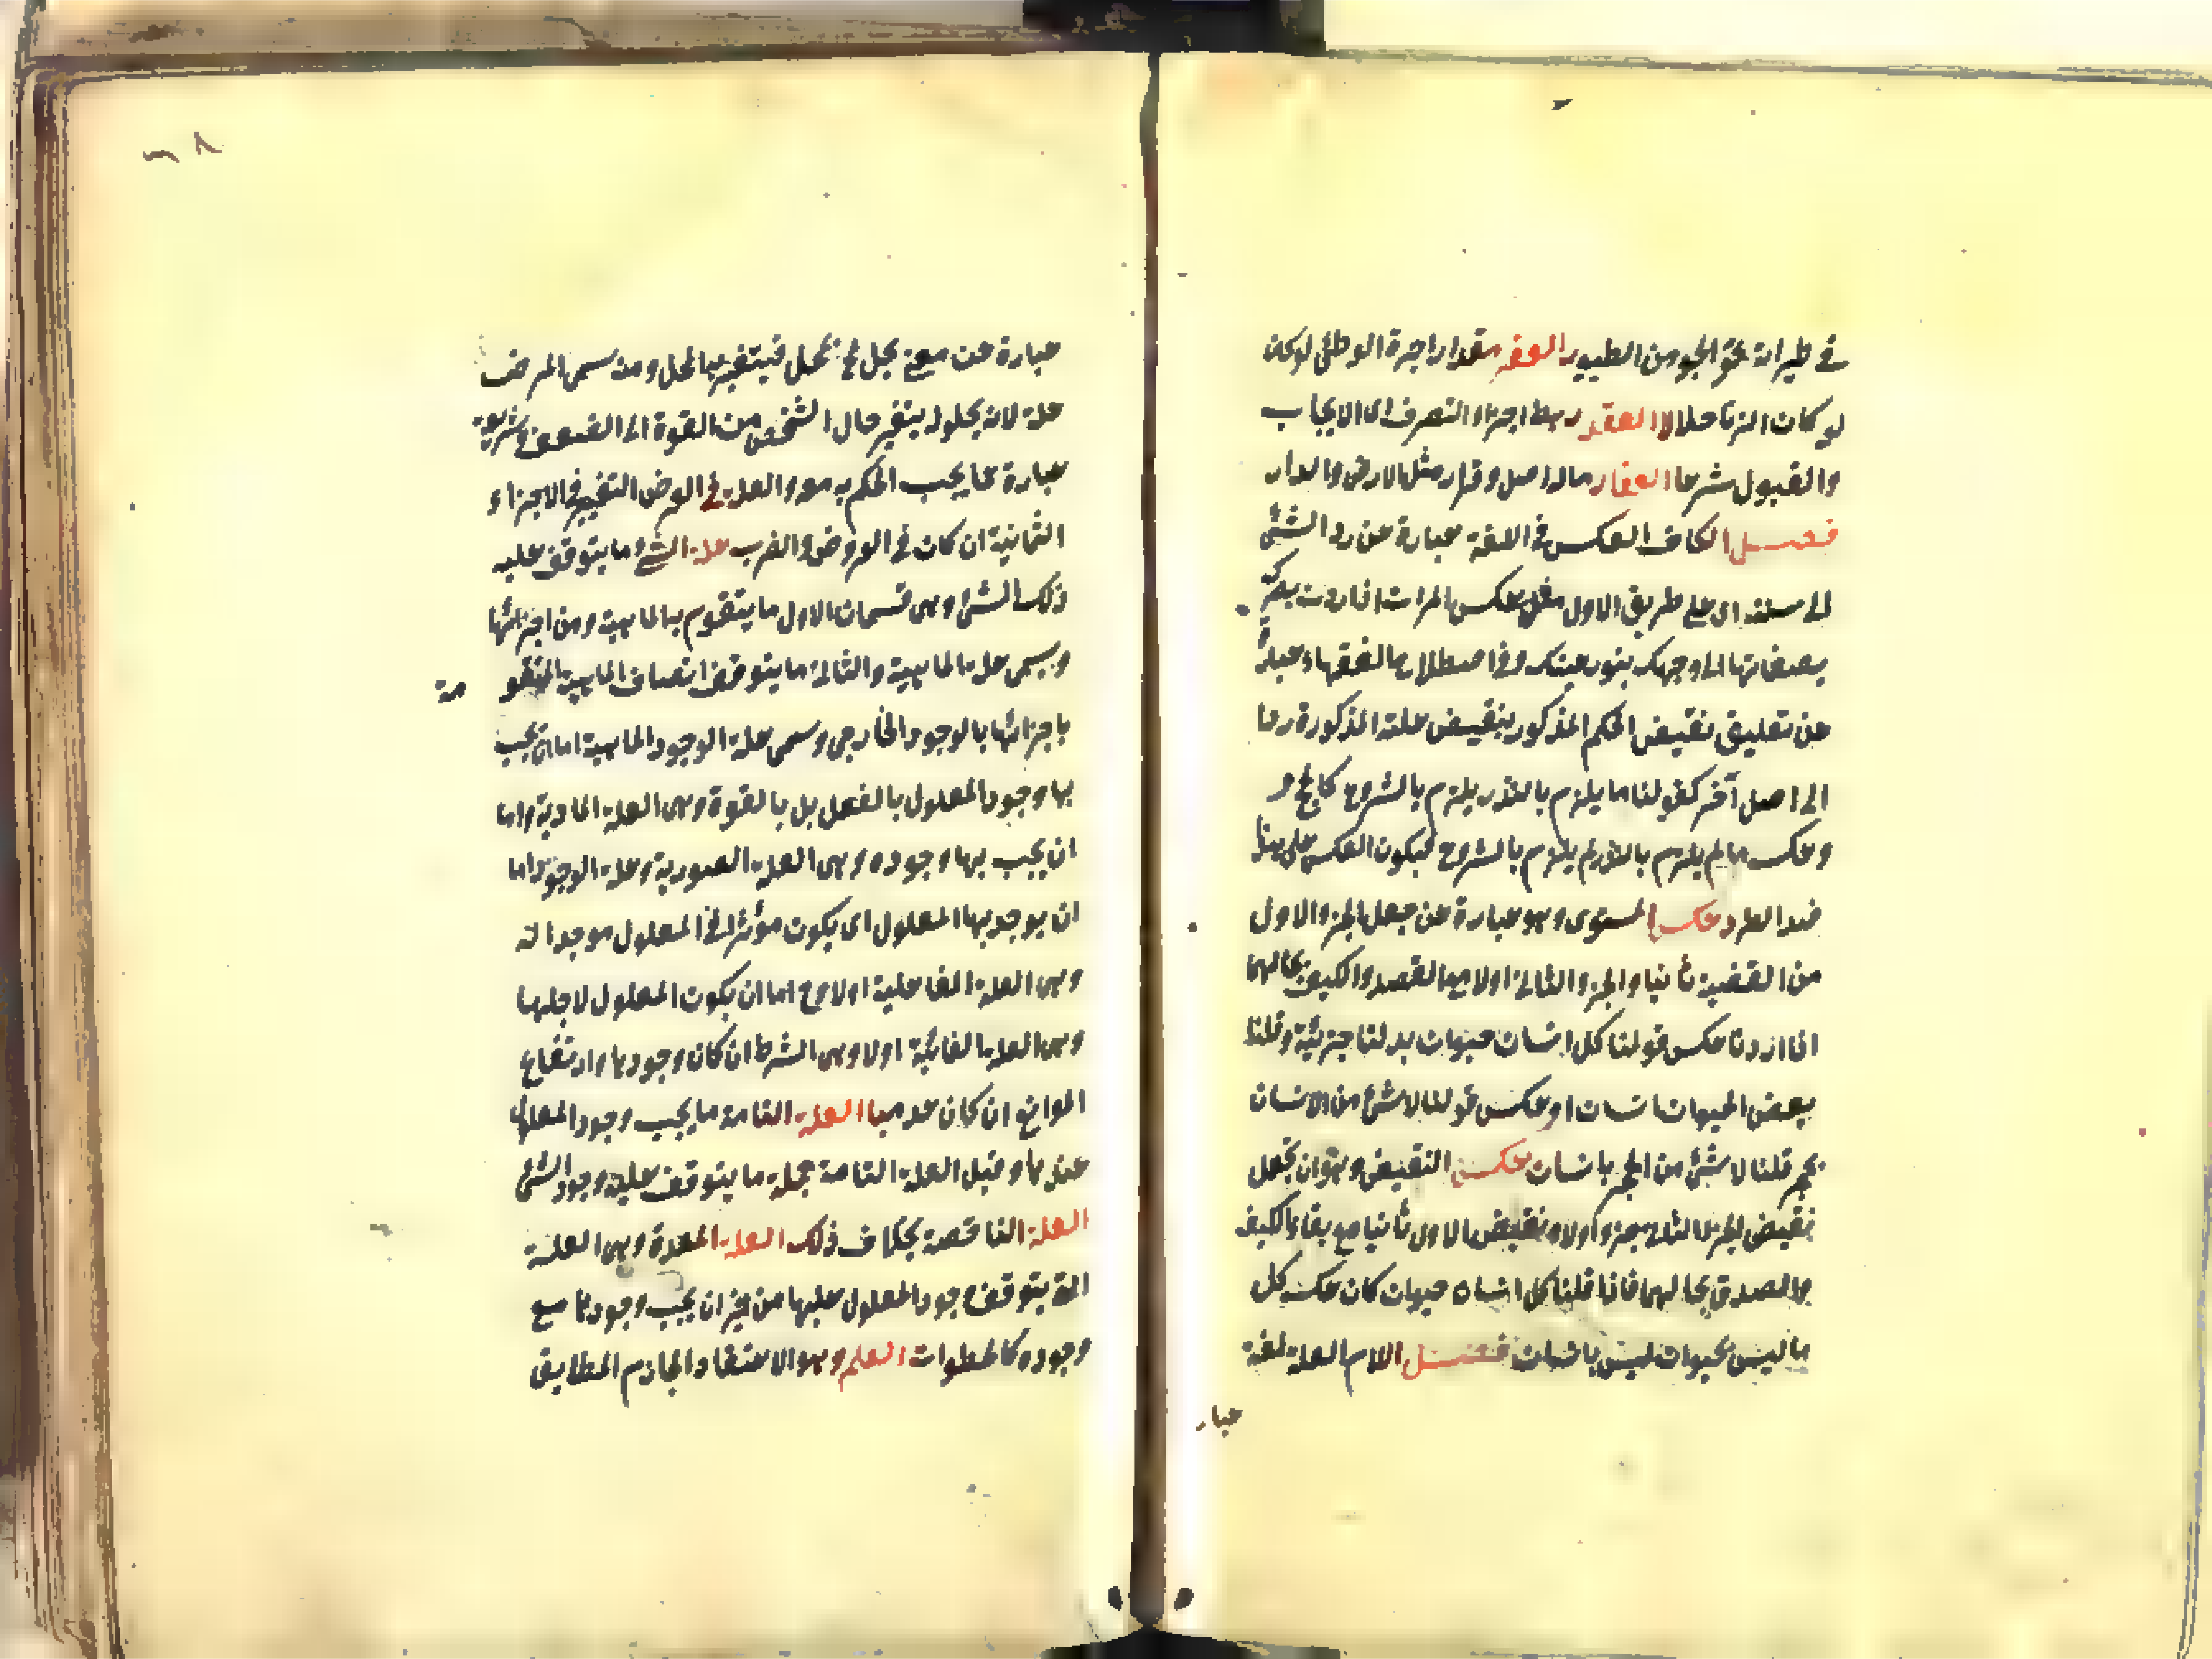 في طيرانه نحو الجو من الطيور العقر مقدار اجرة الوطئ لو كان
لو كان الزنا حلالا العقد ربط اجزاء التصرف اى الايجاب
والقبول شرعا العقار ماله اصل وقرار مثل الارض والدار
فصل الكاف العكس في اللغة عبارة عن رد الشئ
الى سننه اى على طريق الاول مثل عكس المرات اذا ردت بصرك
بصفائها الى وجهك بنور عينك وفى اصطلاح الفقهاء عبارة
عن تعليق نقيض الحكم المذكور بنقيض علته المذكورة ردا
الى اصل آخر كقولنا ما يلزم بالنذر يلزم بالشروع كالحج و
وعكسه ما لم يلزم بالنذر لم يلزم بالشروع فيكون العكس على هذا
ضد الطرد عكس المستوى وهو عبارة عن جعل الجزء الاول
من القضية ثانيا والجزء الثانى اولا مع الصدق والكيف بحالهما
اذا اردنا عكس قولنا كل انسان حيوان بدلنا جزئية وقلنا
بعض الحيوان انسان او عكس قولنا لا شئ من الانسان
بحجر قلنا لا شئ من الحجر بانسان عكس النقيض وهو ان تجعل
نقيض الجزء الثانى جزءا اولا ونقيض الاول ثانيا مع بقاء الكيف
والصدق بحالهما فاذا قلنا كل انسان حيوان كان عكسه كل
ما ليس بحيوان ليس بانسان فصل اللام العلة لغة
عبار
عبارة عن معنى يحل في المحل فيتغير به المحل ومنه سمى المرض
علة لانه بحلوله يتغير حال الشخص من القوة الى الضعف شريعة
عبارة عما يجب الحكم به معه والعلة في العروض التغيير في الاجزاء
الثمانية ان كان في العروض والضرب علة الشئ ما يتوقف عليه
ذلك الشئ وهى قسمان الاول ما يتقوم به الماهية ومن اجزائها
وسمى علة الماهية والثانى ما يتوقف اتصاف الماهية المتقو مة
باجزائها بالوجود الخارجى وسمى علة الوجود الماهية اما ان يجب
بها وجود المعلول بالفعل بل بالقوة وهى العلة المادية واما
ان يجب بها وجوده وهى العلة الصورية وعلة الوجود اما
ان يوجد بها المعلول اى يكون مؤثرا في المعلول موجدا له
وهى العلة الفاعلية اولا وح اما ان يكون المعلول لاجلها
وهى العلة الغائية اولا وهى الشرط ان كان وجوديا وارتفاع
الموانع ان كان عدميا العلة التامة ما يجب وجود المعلول
عندها وقيل العلة التامة جملة ما يتوقف عليه وجود الشئ
العلة الناقصة بخلاف ذلك العلة المعدة وهى العلة
التى يتوقف وجود المعلول عليها من غير ان يجب وجودها مع
وجوده كالخطوات العلم وهو الاعتقاد الجازم المطابق